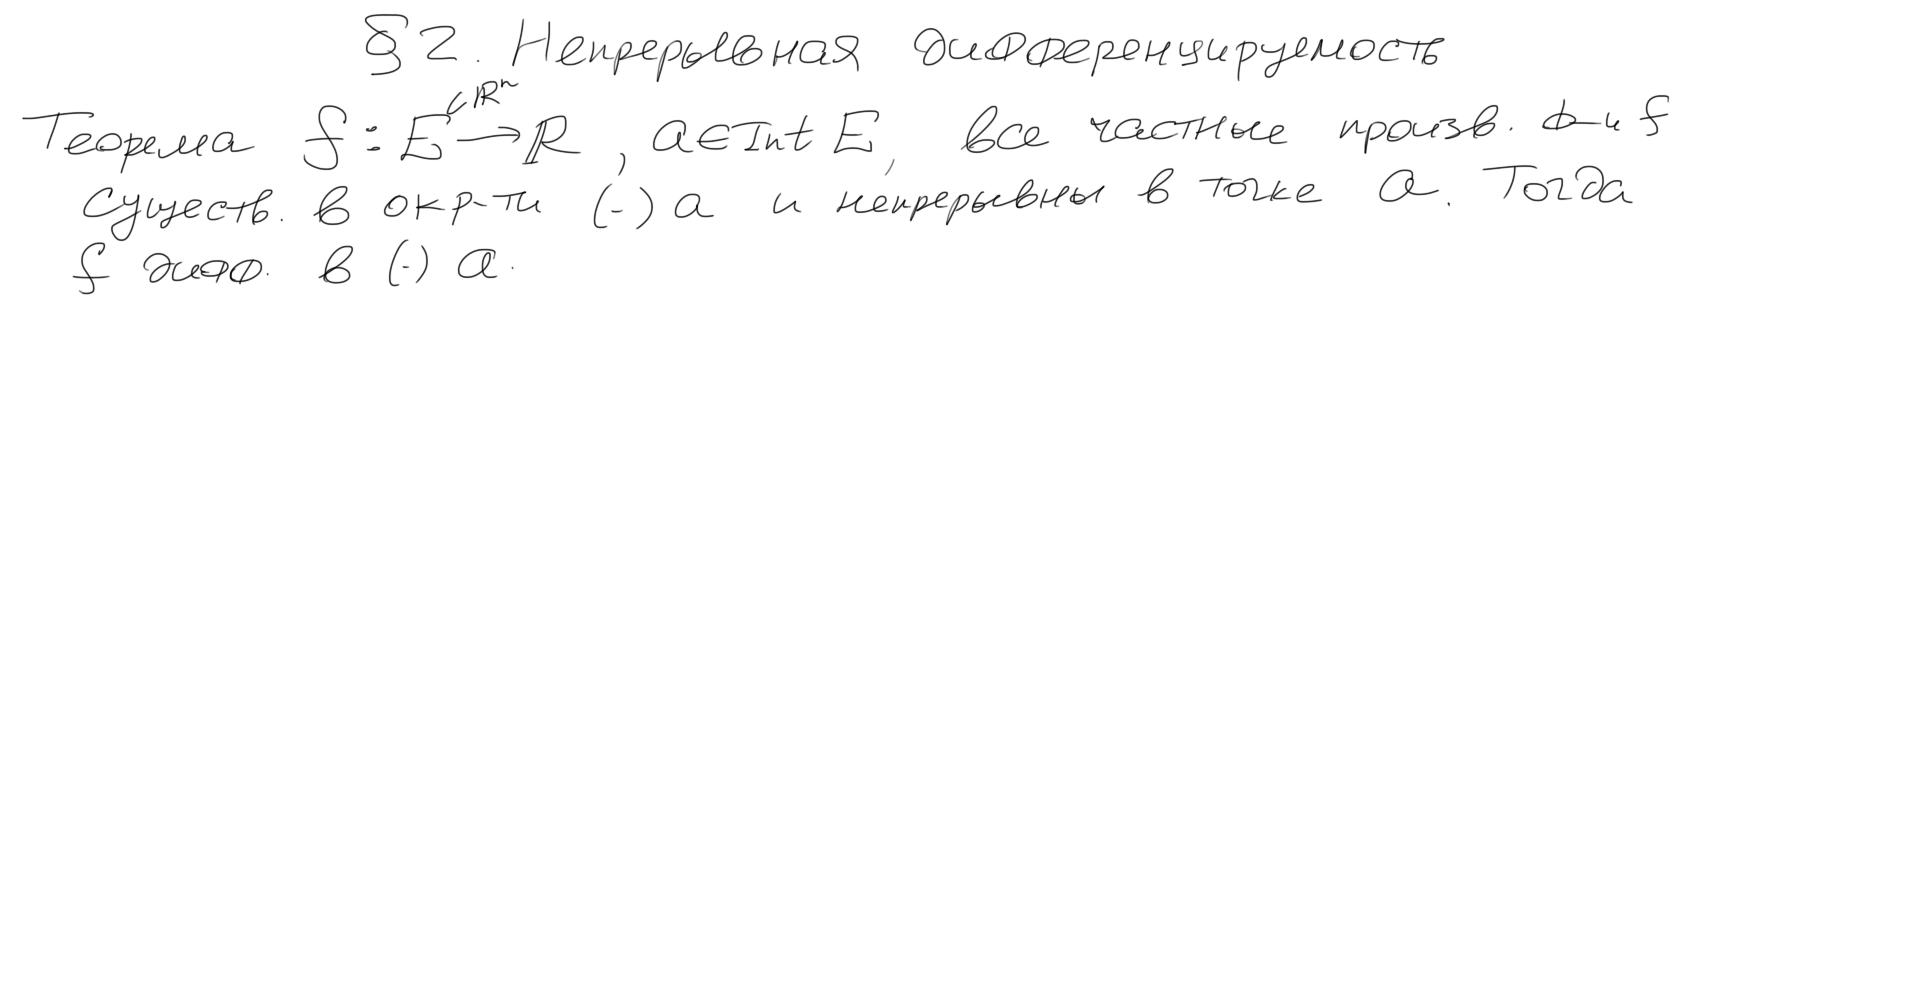 § 2. Непрерывная дифференцируемость
Теорема f : E ⊂ ℝⁿ → ℝ, a ∈ Int E, все частные произв. ф-и f
существ. в окр-ти (·) a и непрерывны в точке a. Тогда
f дифф. в (·) a.